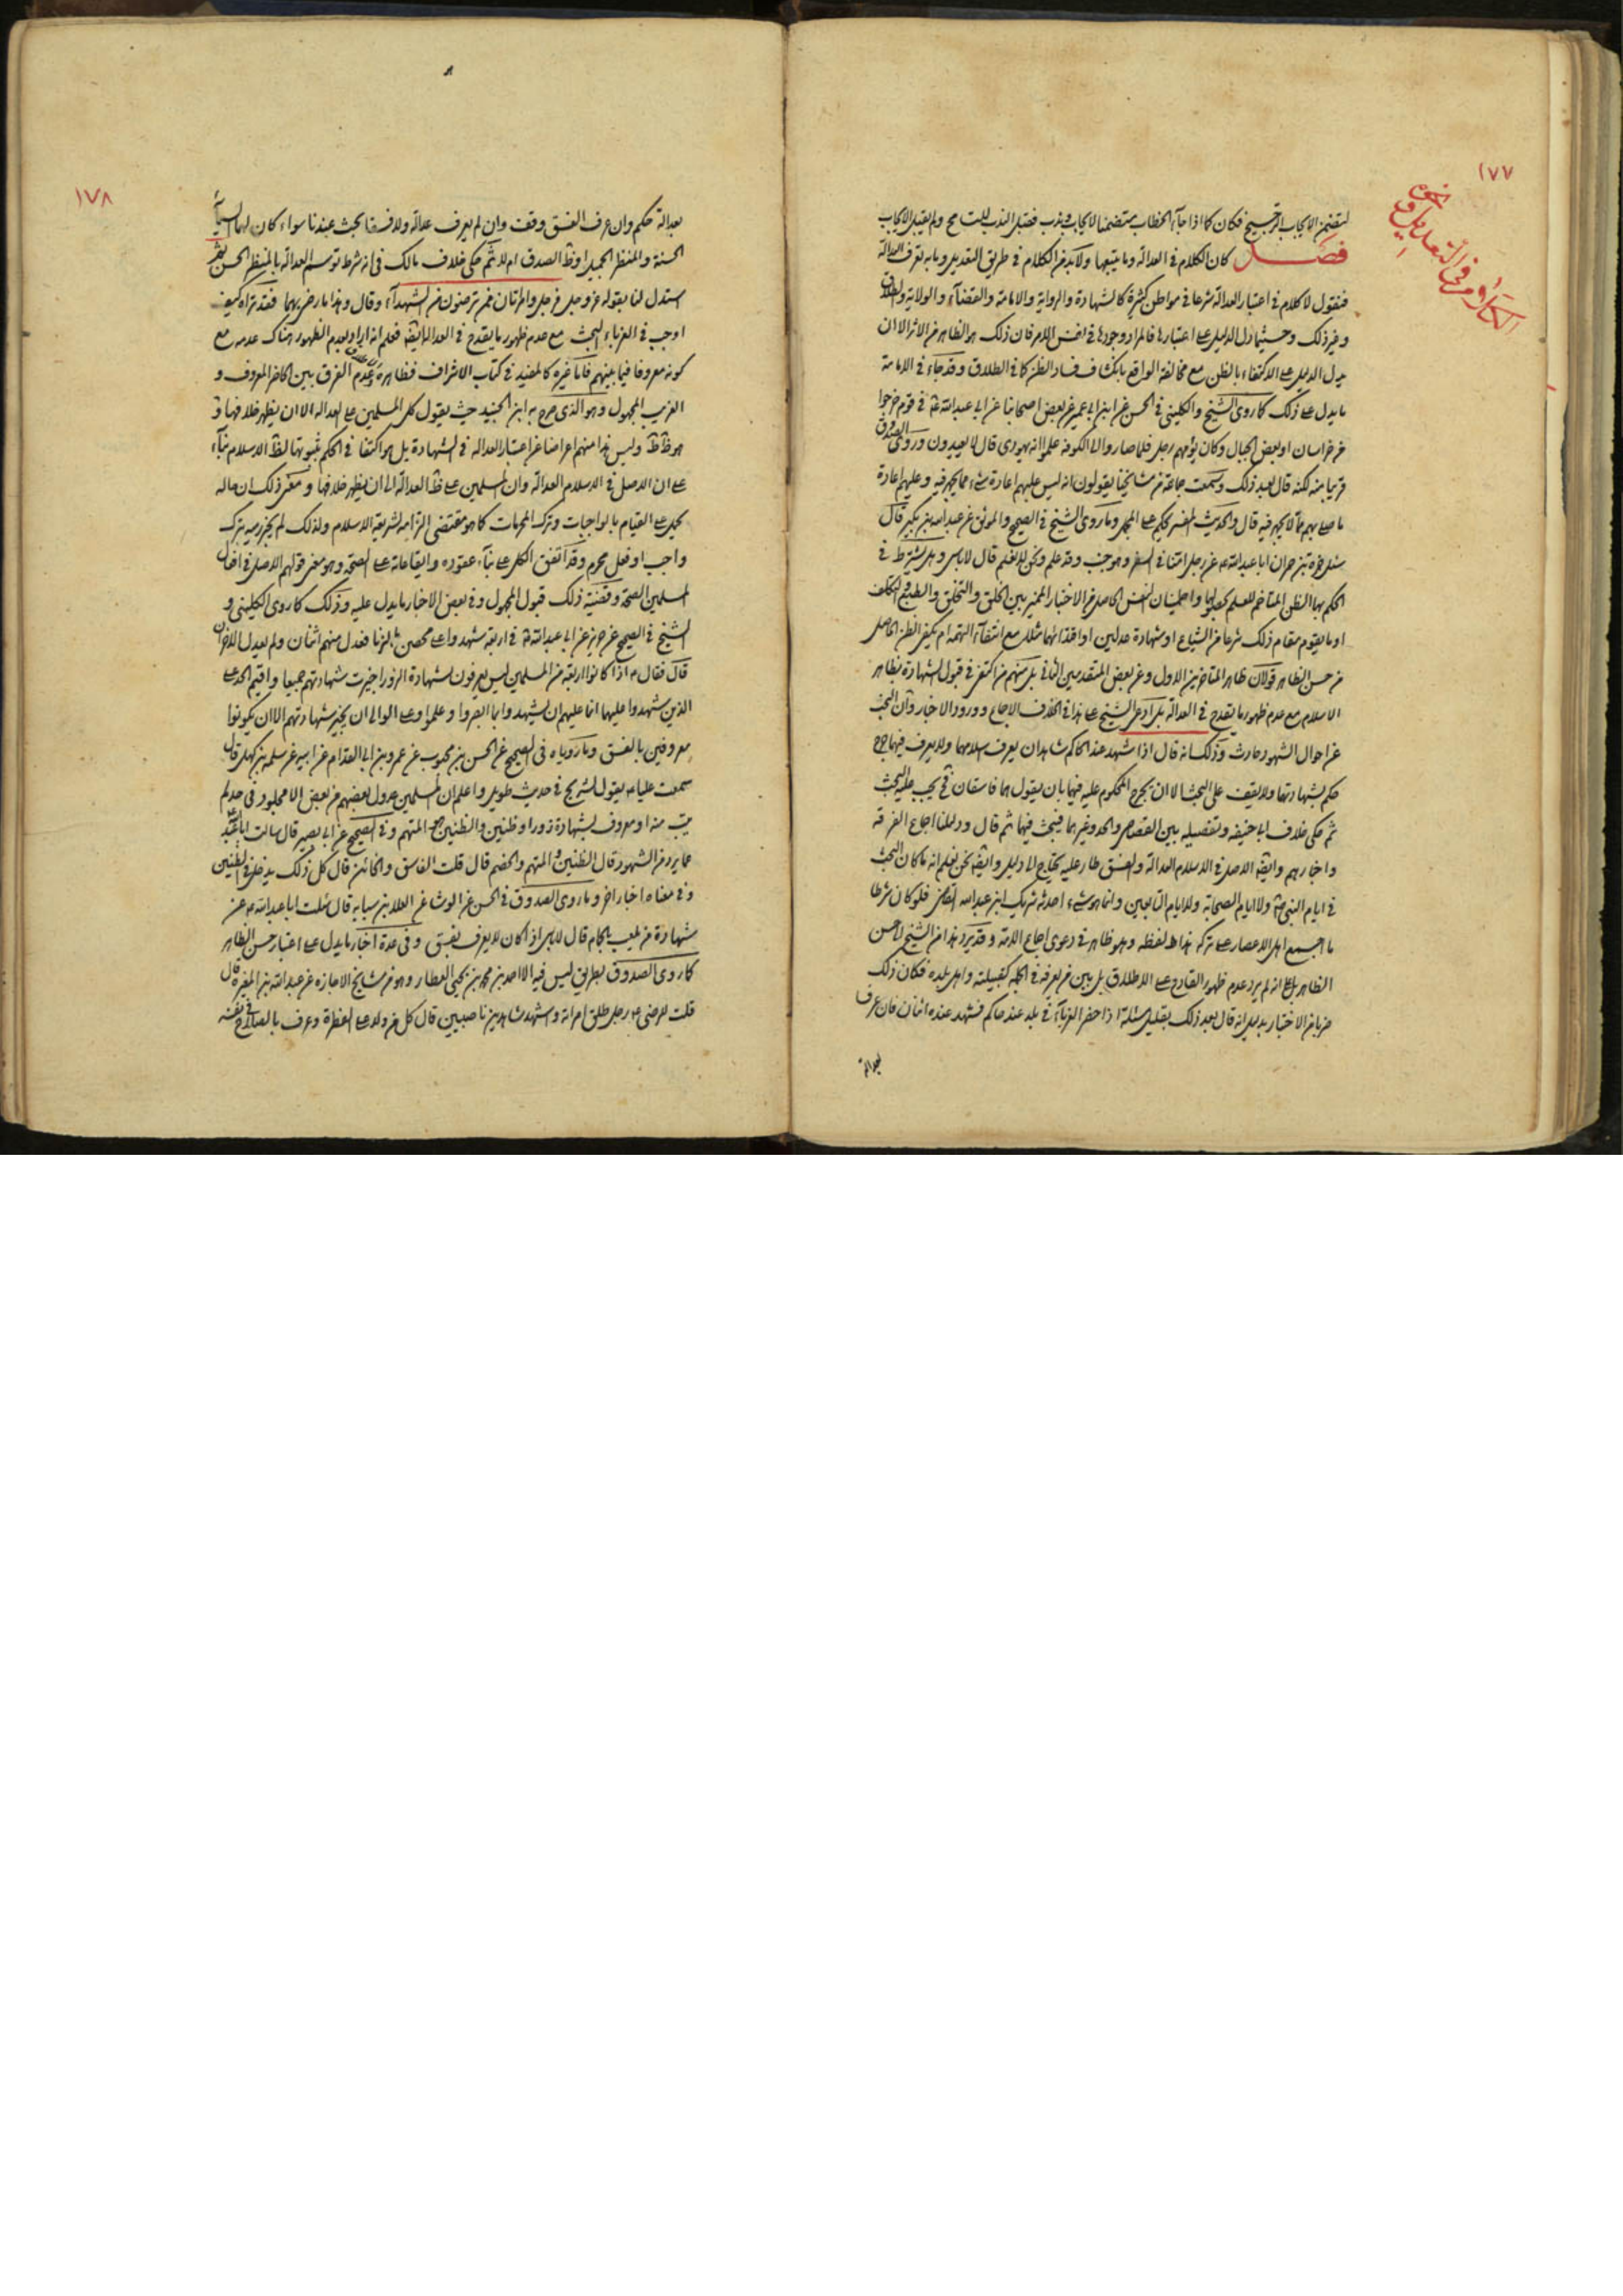 ١٧٧
الكلام في التعديل ونحوه
ليتضمن الايجاب الترجيح فكان كما اذا جاء الخطاب متضمنا لايجاب وندب فضيل الندب للتسامح ولم يقبل الايجاب
فصل كان الكلام في العدالة وما يتبعها ولا بد من الكلام في طريق التعديل وما به تعرف العدالة
فنقول لا كلام في اعتبار العدالة شرعا في مواطن كثيرة كالشهادة والرواية والامامة والقضاء والولاية والطلاق
وغير ذلك وحيثما دل الدليل على اعتبارها فالمراد وجودها في نفس الامر فان ذلك هو الظاهر من الاثر الا ان
يدل الدليل على الاكتفاء بالظن مع مخالفة الواقع بانكشاف فساد الظن كما في الطلاق وقد جاء في الامامة
ما يدل على ذلك كما روى الشيخ والكليني في الحسن عن ابن ابي عمير عن بعض اصحابنا عن ابي عبد الله ع في قوم خرجوا
من خراسان او بعض الجبال وكان يؤمهم رجل فلما صاروا الى الكوفة علموا انه يهودي قال لا يعيدون وروى الصدوق
قريبا منه لكنه قال بعد ذلك وسمعت جماعة من مشايخنا يقولون انه ليس عليهم اعادة شيء مما يجهر فيه وعليهم اعادة
ما صلى بهم مما لا يجهر فيه قال والحديث المفسر يحكم على المجمل وما روى الشيخ في الصحيح والموثق عن عبد الله بن بكير قال
سئل حمزة بن حمران ابا عبد الله ع عن رجل امنا في السفر وهو جنب وقد علم ونحن لا نعلم قال لا باس وهل يشترط في
الحكم بها الظن المتاخم للعلم بحصولها واطمينان النفس الحاصل من الاختبار المميز بين الخلق والتخلق والطبع والتكلف
او ما يقوم مقام ذلك شرعا من الشياع او شهادة عدلين او اقتدائهما مثلا مع انتفاء التهمة ام يكفي الظن الحاصل
من حسن الظاهر قولان ظاهر المتاخرين الاول وعن بعض المتقدمين الثاني بل منهم من اكتفى في قبول الشهادة بظاهر
الاسلام مع عدم ظهور ما يقدح في العدالة بل ادعى الشيخ على هذا في الخلاف الاجماع وورود الاخبار وان البحث
عن احوال الشهود حادث وذلك انه قال اذا شهد عند الحاكم شاهدان يعرف اسلامهما ولا يعرف فيهما جرح
حكم بشهادتهما ولا يقف على البحث الا ان يجرح المحكوم عليه فيهما بان يقول هما فاسقان فح يجب عليه البحث
ثم حكى خلاف ابي حنيفه وتفصيله بين القصاص والحد وغيرهما فيبحث فيهما ثم قال ودليلنا اجماع الفرقة
واخبارهم وايضا الاصل في الاسلام العدالة والفسق طار عليه يحتاج الى دليل وايضا نحن نعلم انه ما كان البحث
في ايام النبي ص ولا ايام الصحابة ولا ايام التابعين وانما هو شيء احدثه شريك ابن عبد الله القاضي فلو كان شرطا
ما اجمع اهل الاعصار على تركه هذا لفظه وهو ظاهر في دعوى اجماع الامة وقد يرد هذا من الشيخ الى حسن
الظاهر بل على انه لم يرد عدم ظهور القادح على الاطلاق بل بين من يعرفه في الجملة كقبيلته واهل بلده فكان ذلك
ضربا من الاختبار بدليل انه قال بعد ذلك بقليل مسئلة اذا حضر الغرباء في بلد عند حاكم فشهد عنده اثنان فان عرف
بعدالة
١٧٨
بعدالة حكم وان عرف الفسق وقف وان لم يعرف عدالة ولا فسقا بحث عندنا سواء كان لهما السيماء
الحسنة والمنظر الجميل او ظ الصدق ام لا ثم حكى خلاف مالك في انه شرط توسم العدالة بالمنظر الحسن ثم
استدل لنا بقوله عز وجل فرجل وامرأتان ممن ترضون من الشهداء وقال وهذا ما رضي بهما فقد تراه كيف
اوجب في الغرباء البحث مع عدم ظهور ما يقدح في العدالة ايضا فعلم انه اراد بعدم الظهور هناك عدمه مع
كونه معروفا فيما بينهم فاما غيره كالمفيد في كتاب الاشراف فظاهره عدم الفرق بين الحاضر المعروف و
الغريب المجهول وهو الذي صرح به ابن الجنيد حيث يقول كل المسلمين على العدالة الا ان يظهر خلافها و
هو ظ ط وليس هذا منهم اعراضا عن اعتبار العدالة في الشهادة بل هو اكتفا في الحكم بثبوتها لظ الاسلام بناء
على ان الاصل في الاسلام العدالة وان المسلمين على ظ العدالة الى ان يظهر خلافها ومعنى ذلك ان حاله
يحمل على القيام بالواجبات وترك المحرمات كما هو مقتضى التزامه لشريعة الاسلام ولذلك لم يجز رميه بترك
واجب او فعل محرم وقد اتفق الكل على بناء عقوده وايقاعاته على الصحة وهو معنى قولهم الاصل في افعال
المسلمين الصحة وقضية ذلك قبول المجهول وفي بعض الاخبار ما يدل عليه وذلك كما روى الكليني و
الشيخ في الصحيح عن حريز عن ابي عبد الله ع في اربعة شهدوا على محصن بالزنا فعدل منهم اثنان ولم يعدل الاخران
قال فقال ع اذا كانوا اربعة من المسلمين ليس يعرفون بشهادة الزور اجيزت شهادتهم جميعا واقيم الحد على
الذين شهدوا عليهما انما عليهم ان يشهدوا بما ابصروا وعلموا وعلى الوالي ان يجيز شهادتهم الا ان يكونوا
معروفين بالفسق وما روياه في الصحيح عن الحسن بن محبوب عن عمرو بن ابي المقدام عن ابيه عن سلمه بن كهيل قال
سمعت عليا ع يقول لشريح في حديث طويل واعلم ان المسلمين عدول بعضهم من بعض الا مجلود في حد لم
يتب منه او معروف بشهادة زور او ظنين والظنين هو المتهم وفي الصحيح عن ابي بصير قال سالت ابا عبد الله
عما يرد من الشهود قال الظنين والمتهم والخصم قال قلت الفاسق والخائن قال كل ذلك يدخل في الظنين
وفي معناه اخبار اخر وما روى الصدوق في الحسن عن الوشا عن العلا بن سيابه قال سئلت ابا عبد الله ع عن
شهادة من يلعب بالحمام قال لا باس اذا كان لا يعرف بفسق وفي عدة اخبار ما يدل على اعتبار حسن الظاهر
كما روى الصدوق بطريق ليس فيه الا احمد بن محمد بن يحيى العطار وهو من مشايخ الاجازه عن عبد الله بن المغيرة قال
قلت للرضى ع رجل طلق امراته واشهد شاهدين ناصبين قال كل من ولد على الفطرة وعرف بالصلاح في نفسه